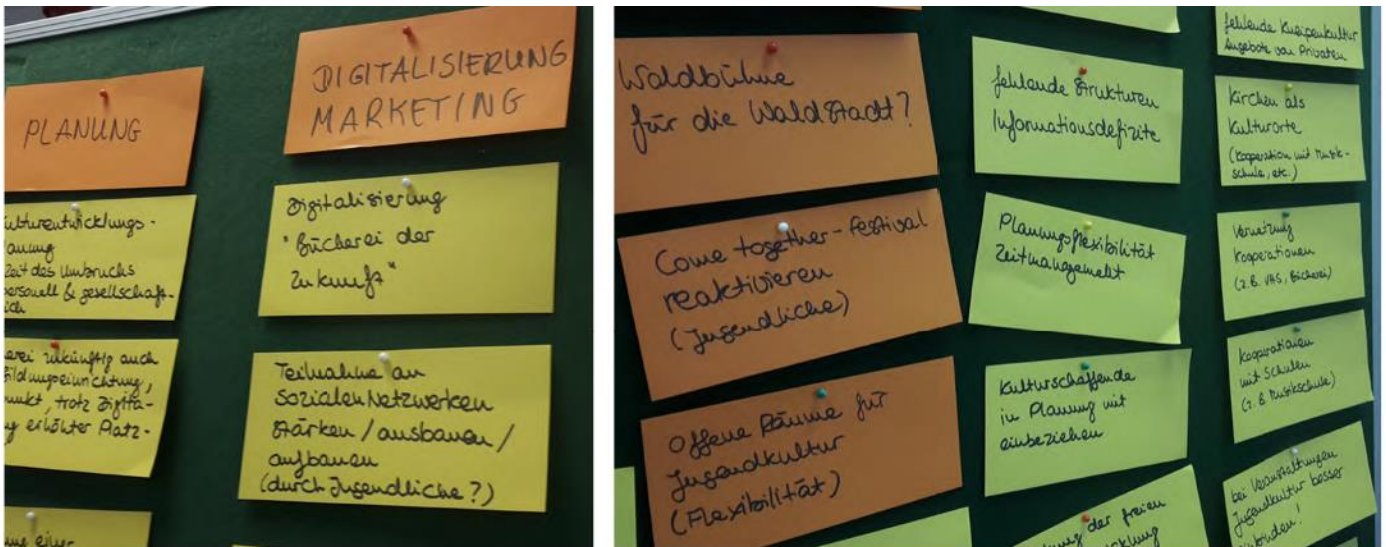 PLANUNG
Kulturentwicklungs-
planung
Zeit des Umbruchs
personell & gesellschaft-
lich
zukünftig auch
Bildungseinrichtung,
trotz Digita-
erhöhter Platz-
einer
DIGITALISIERUNG
MARKETING
Digitalisierung
"Bücherei der
Zukunft"
Teilnahme an
Sozialen Netzwerken
stärken / ausbauen /
aufbauen
(durch Jugendliche?)
Waldbühne
für die Waldstadt?
Come together-Festival
reaktivieren
(Jugendliche)
Offene Räume für
Jugendkultur
(Flexibilität)
fehlende Strukturen
Informationsdefizite
Planungsflexibilität
Zeitmanagement
Kulturschaffende
in Planung mit
einbeziehen
der freien
fehlende Kneipenkultur
Angebote von Privaten
Kirchen als
Kulturorte
(Kooperation mit Musik-
schule, etc.)
Vernetzung
Kooperationen
(z.B. VHS, Bücherei)
Kooperationen
mit Schulen
(z.B. Musikschule)
bei Veranstaltungen
Jugendkultur besser
einbinden!